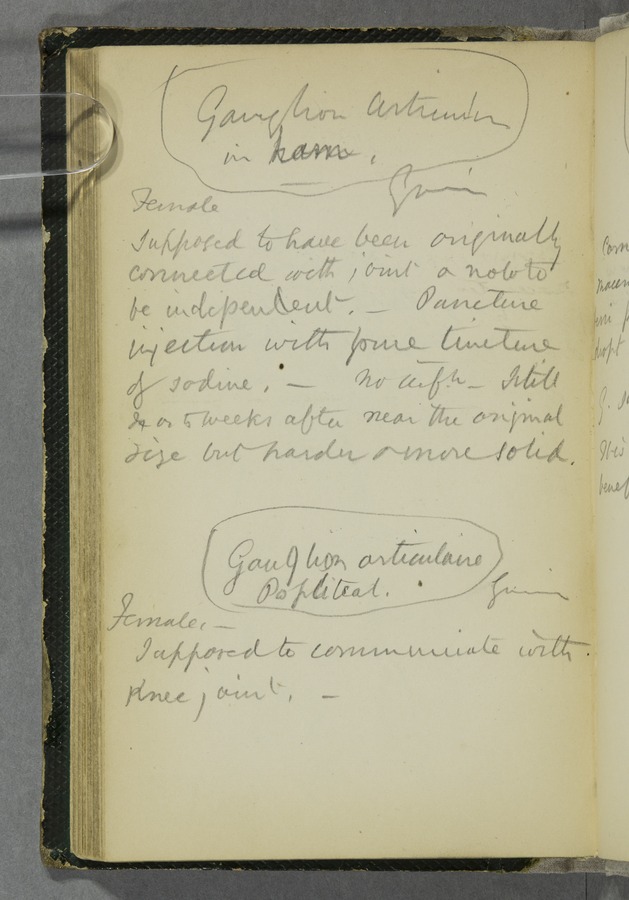 Ganglion articular
in ham.
Female
Supposed to have been originally
connected with joint & now to
be independent. – Puncture
injection with pure tincture
of iodine. – no – Still
4 or 5 weeks after near the original
size but harder & more solid.
Ganglion articulaire
Popliteal.
Female. –
Supposed to communicate with
Knee joint. –